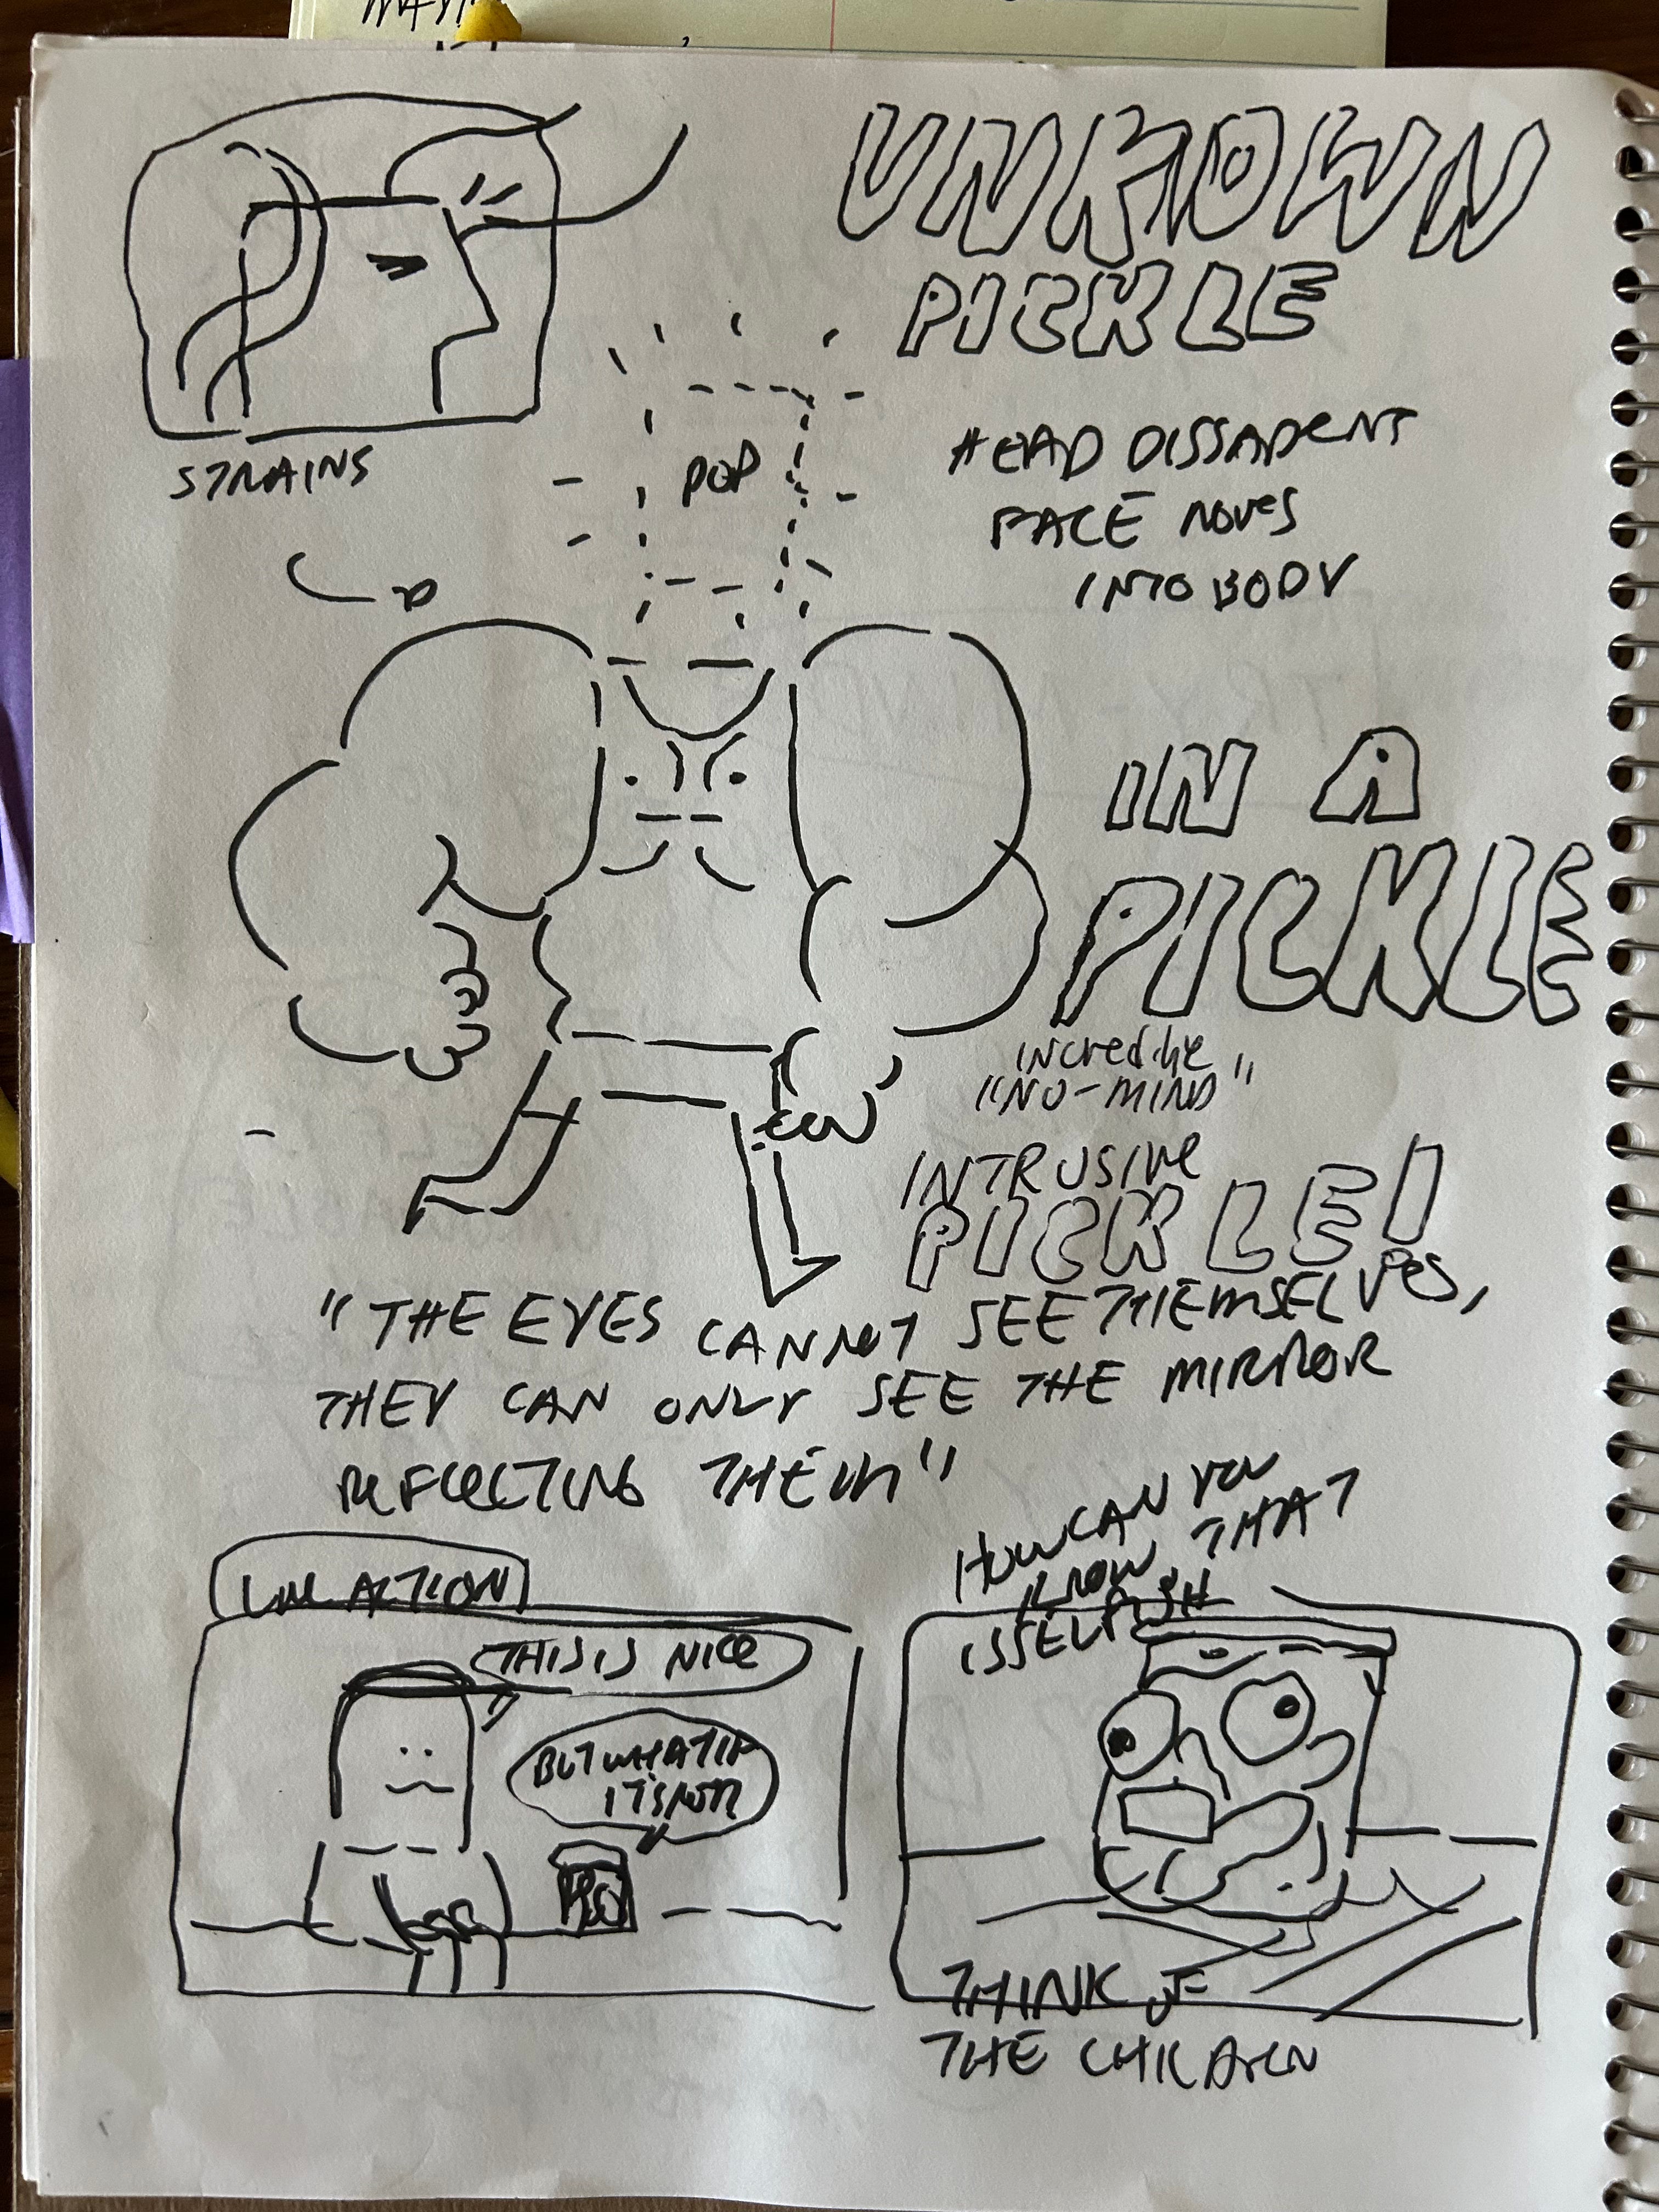 UNKOWN
PICKLE
STRAINS
POP
HEAD DISSAPEARS
FACE MOVES
INTO BODY
IN A
PICKLE
INCREDIBLE
"NO-MIND"
INTRUSIVE
PICKLE!
"THE EYES CANNOT SEE THEMSELVES,
THEY CAN ONLY SEE THE MIRROR
REFLECTING THEM"
HOW CAN YOU
KNOW THAT
ISSELFISH
ACTION
THIS IS NICE
BUT WHAT IF
IT'S NOT
THINK OF
THE CHILDREN